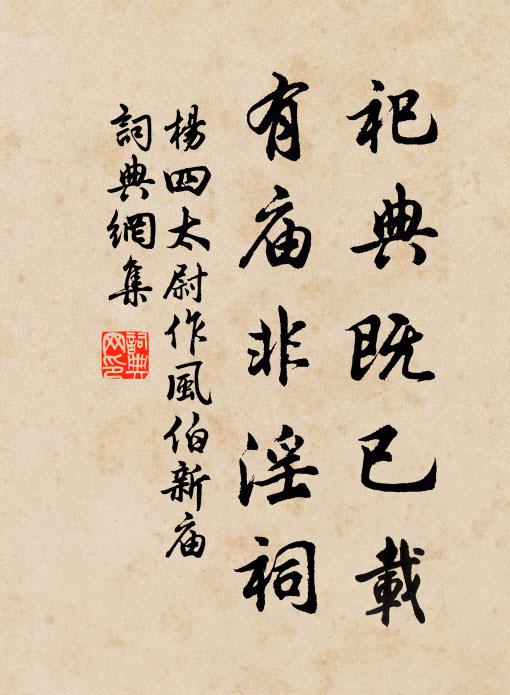 祀典既已載
有庙非淫祠
楊四太尉作風伯新庙
詞典網集
詞典网印